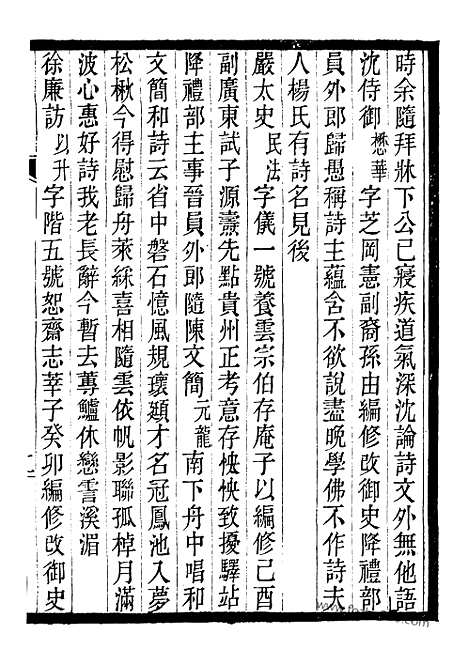 時余隨拜牀下公已寢疾道氣深沈論詩文外無他語
沈侍御懋華字芝岡憲副裔孫由編修改御史降禮部
員外郎歸愚稱詩主蘊含不欲說盡晚學佛不作詩夫
人楊氏有詩名見後
嚴太史民法字儀一號養雲宗伯存庵子以編修己酉
副廣東試子源燾先點貴州正考意存怏怏致擾驛站
降禮部主事晉員外郎隨陳文簡元龍南下舟中唱和
文簡和詩云省中磐石憶風規瓌頲才名冠鳳池入夢
松楸今得慰歸舟萊綵喜相隨雲依帆影聯孤棹月滿
波心惠好詩我老長辭今暫去蓴鱸休戀霅溪湄
徐廉訪以升字階五號恕齋志莘子癸卯編修改御史